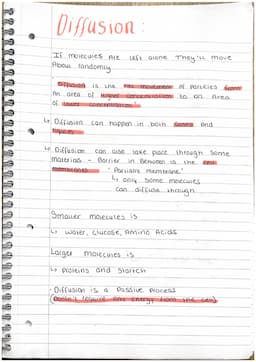 Diffusion:
If molecules are left alone They'll move
About randomly
Diffusion is the net movement of particles from
An area of higher concentration to an Area
of lower concentration
↳ Diffusion can happen in both Gases and
liquids
↳ Diffusion can also take place through some
materials - Barrier in Between is the cell
membrane "Partially membrane"
↳ only some molecules
can diffuse through
Smaller molecules is
↳ water, Glucose, Amino Acids
Larger molecules is
↳ proteins and starch
Diffusion is a Passive Process
(Doesn't require any energy from the cell)